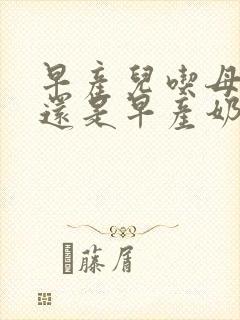 早產兒喫母
還是早產奶
藤屑